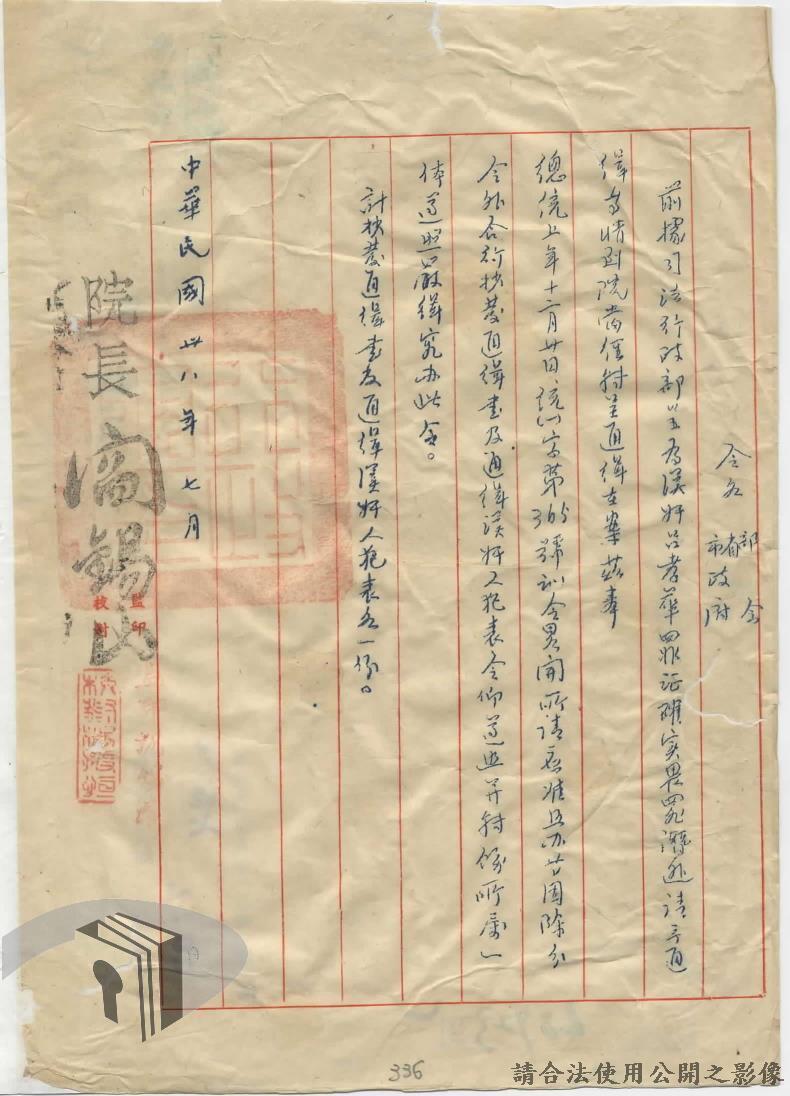 令各部會
省市政府
前據司法行政部呈為漢奸呂孝華罪証確實畏罪潛逃請予通
緝等情到院當經轉呈通緝在案茲奉
總統上年十二月廿日統㈠字第365號訓令畧開所請應准照办等因除分
令外合行抄發通緝書及通緝漢奸人犯表令仰遵照并轉飭所屬一
体遵照嚴緝究办此令。
計抄發通緝書及通緝漢奸人犯表各一份。
中華民國卅八年七月
院長閻錫山
監印
校對
336
請合法使用公開之影像